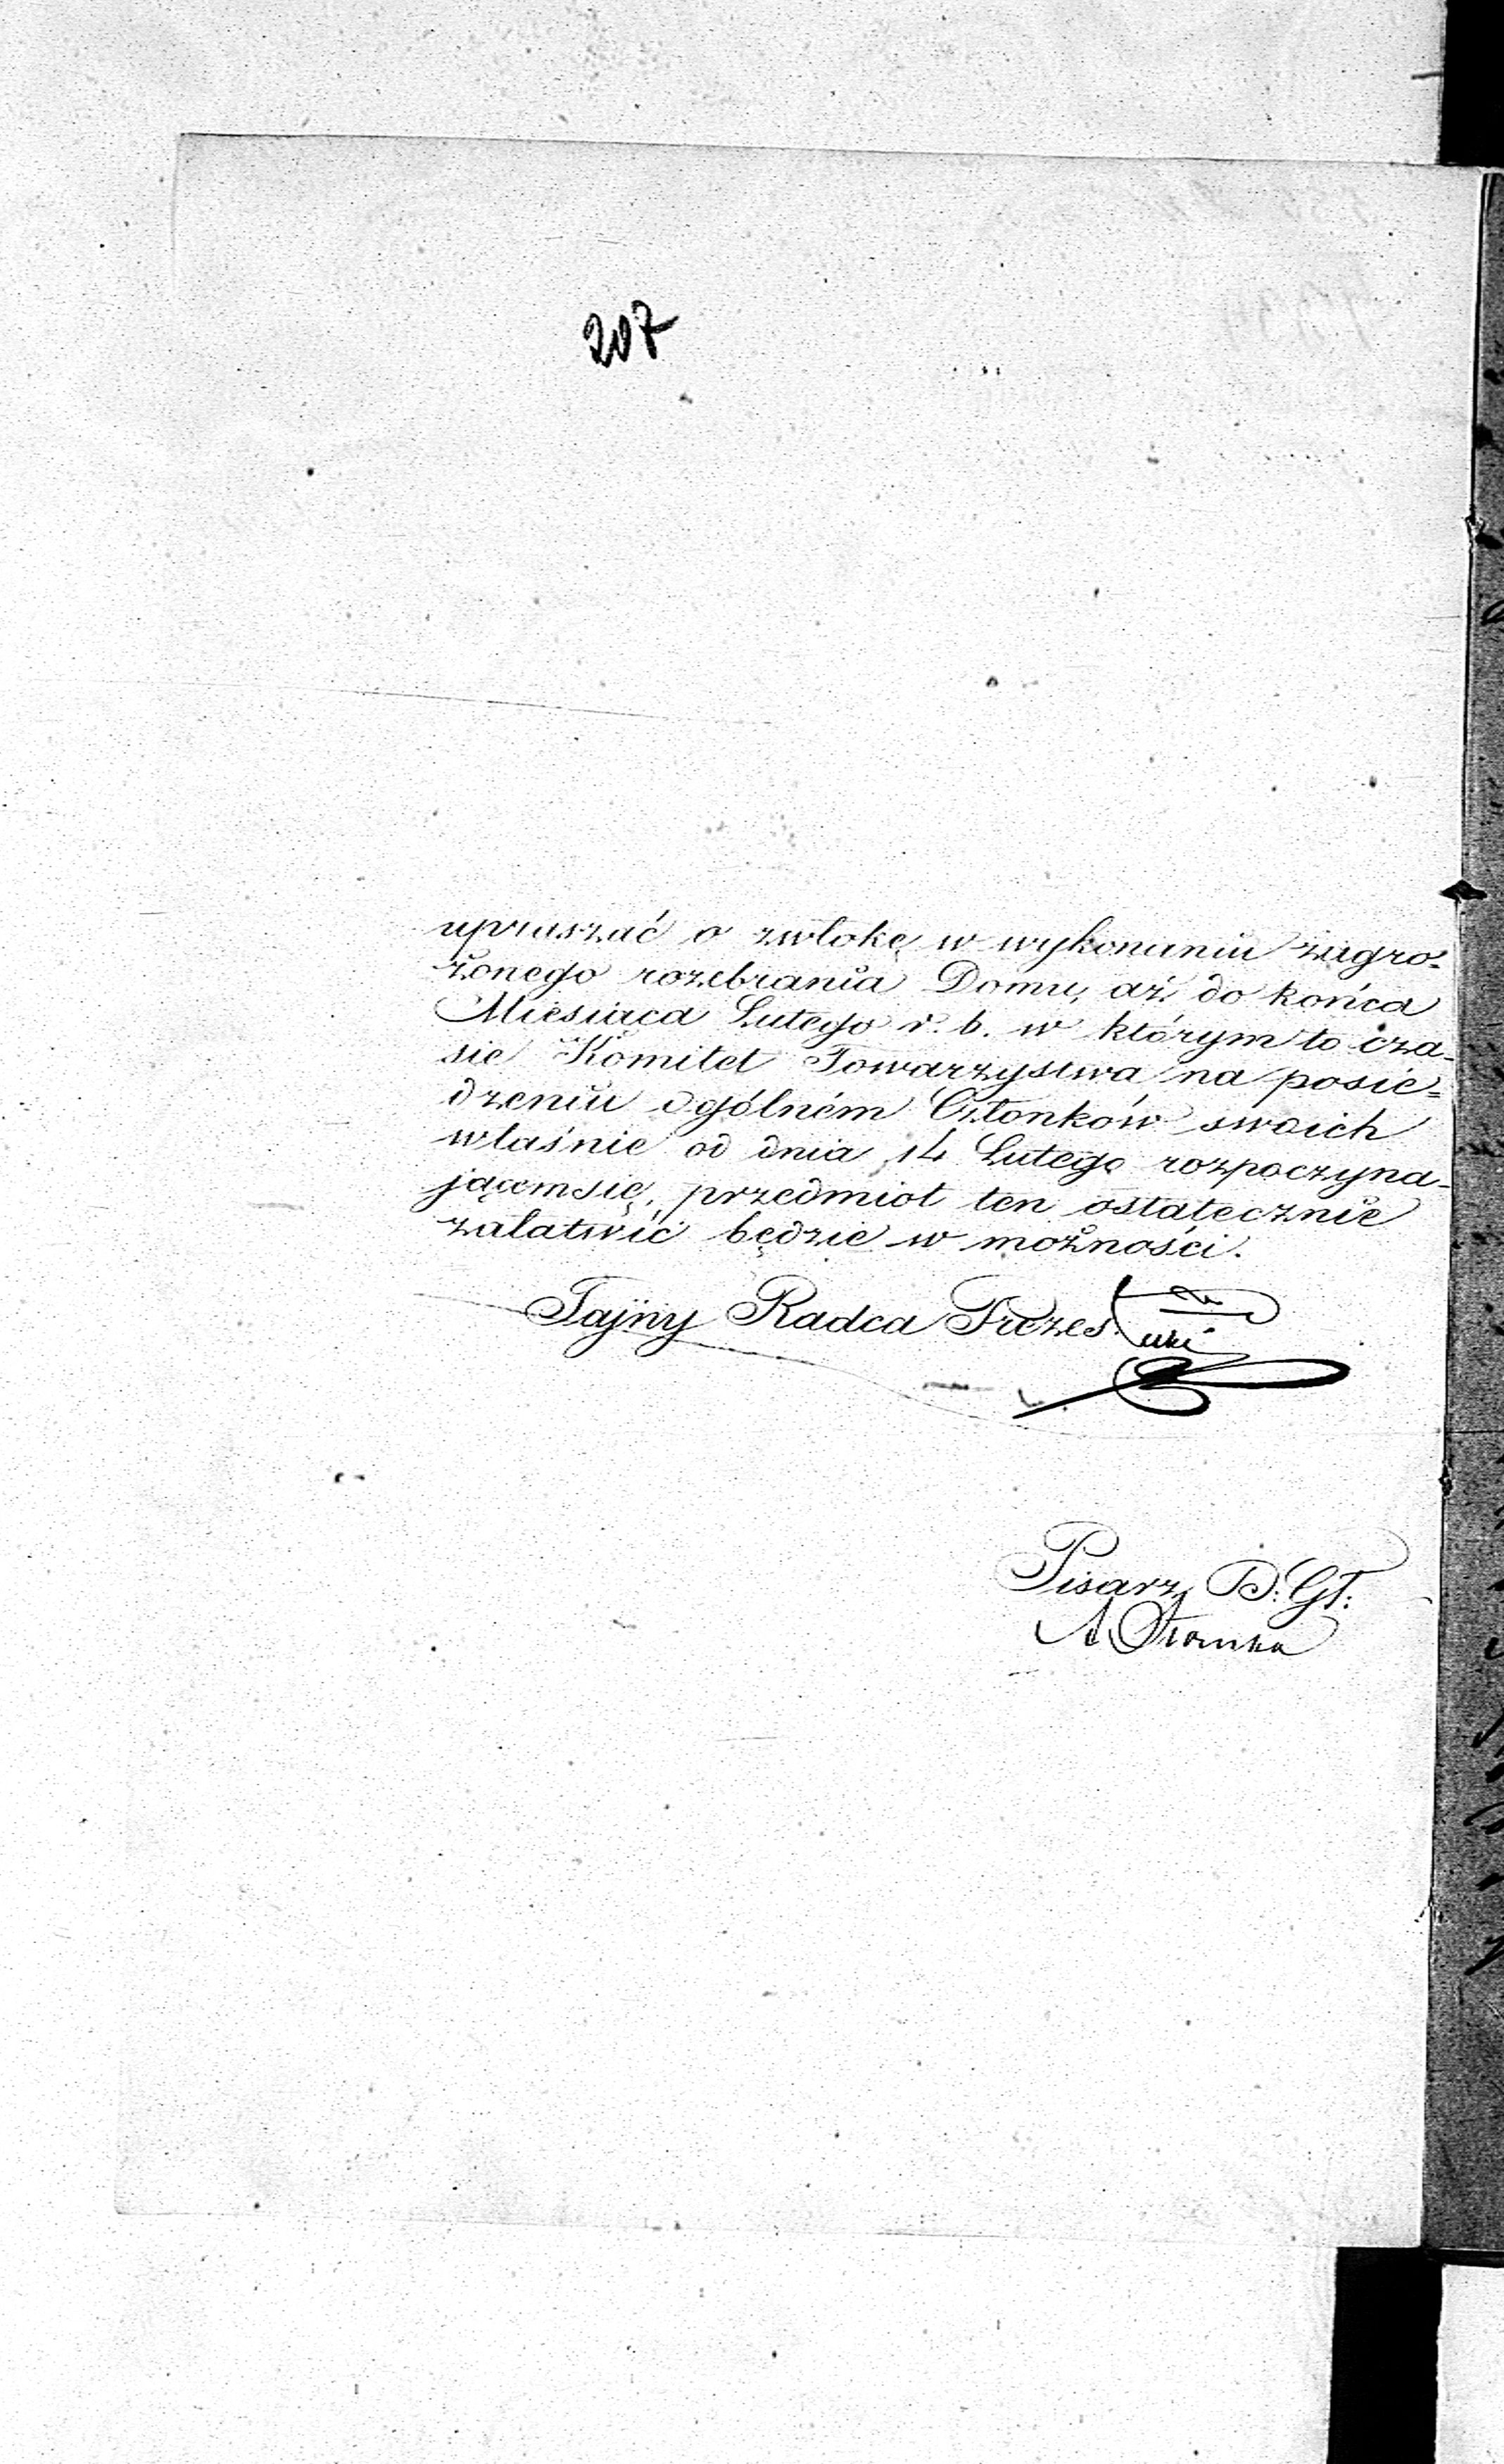 207
upraszać o zwłokę w wykonaniu zagro-
żonego rozebrania Domu, aż do końca
Miesiąca Lutego r. b. w którym to cza-
sie Komitet Towarzystwa na posie-
dzeniu ogólném Członków swoich
właśnie od dnia 14 Lutego rozpoczyna-
jącemsię, przedmiot ten ostatecznie
załatwić będzie w możności.
Tajny Radca Prezes
Pisarz D: Gł: